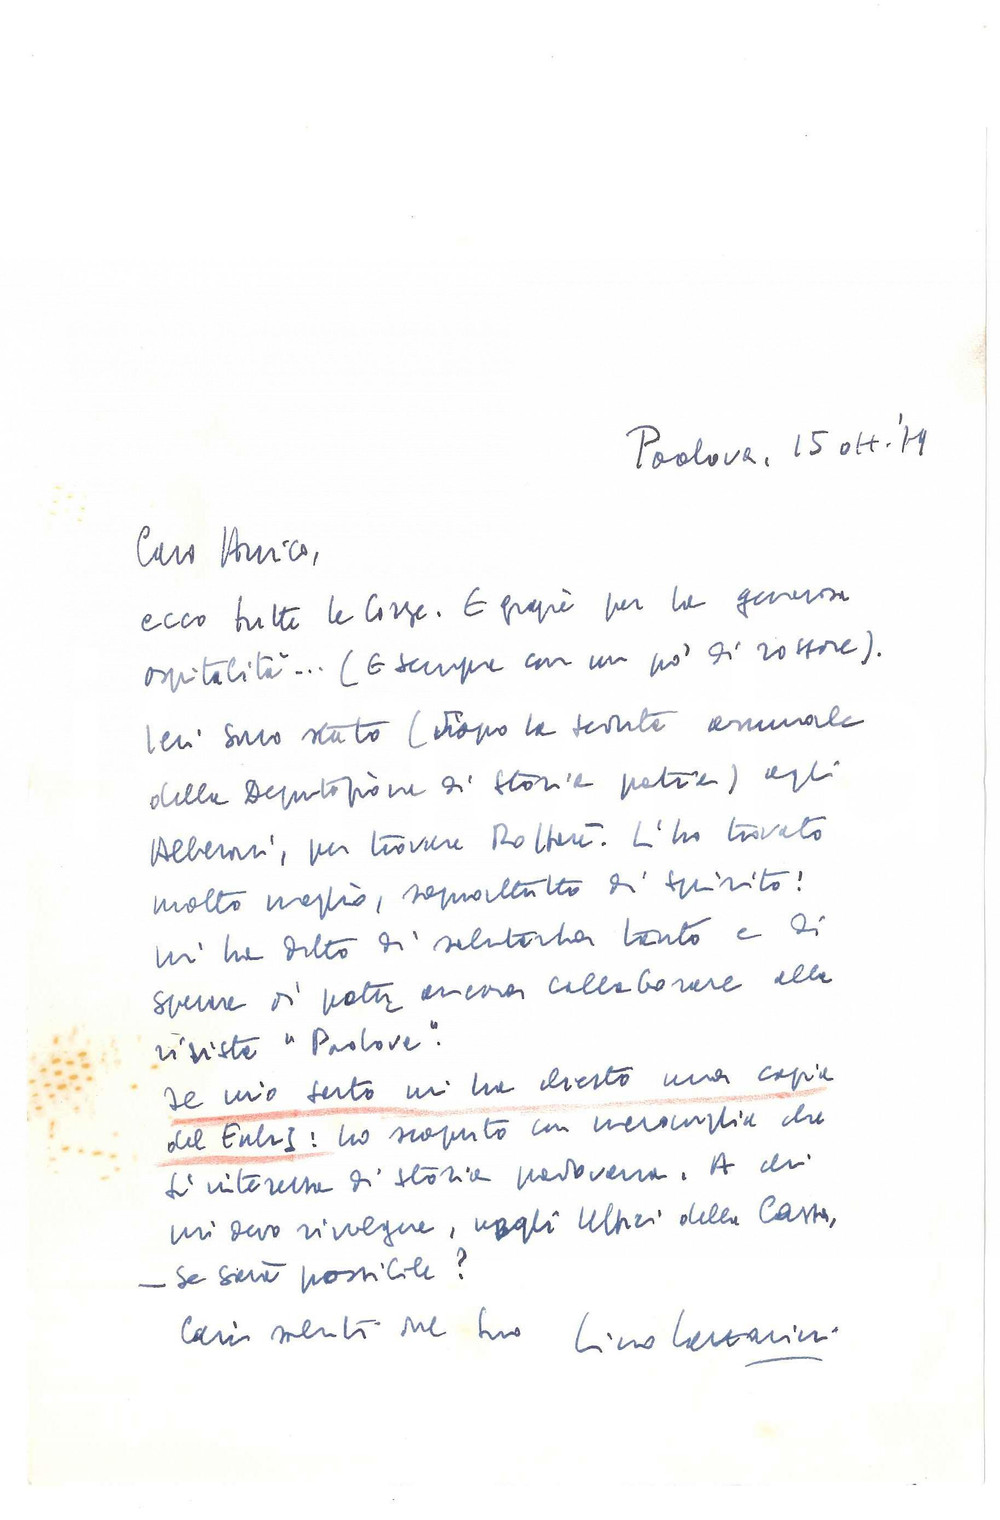 Padova, 15 ott. '79
Caro Amico,
ecco tutte le Corse. E grazie per la generosa
ospitalità... (E sempre con un po' di rossore).
Ieri sono stato (dopo la seduta annuale
della Deputazione di Storia patria) agli
Alberoni, per trovare L'ho trovato
molto meglio, soprattutto di spirito!
Mi ha detto di salutarla tanto e di
sperare di poter ancora collaborare alla
rivista "Padova".
mio mi ha chiesto una copia
del : ho scoperto con meraviglia che
si interessa di storia padovana. A chi
mi devo rivolgere, negli Uffici della Cassa,
— se sarà possibile?
Cari saluti dal Suo Lino Lazzarini